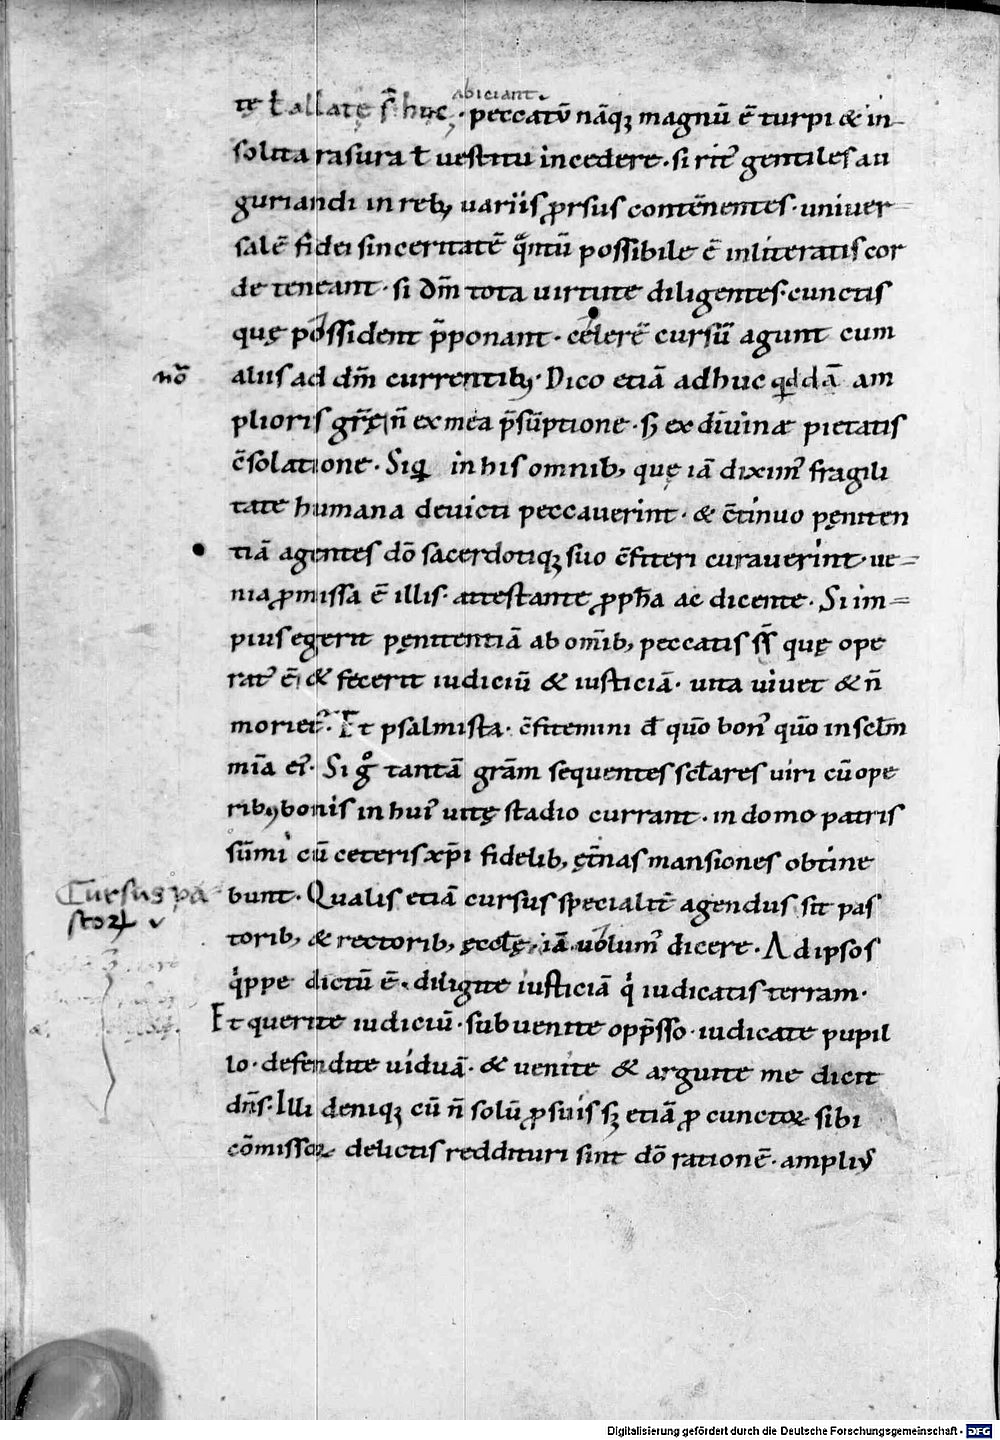 abiciant
tę ł allatę s̄ huc · peccatū nāq; magnū ē turpi & in-
solita rasura ł vestitu incedere · si rite gentiles au
guriandi in reb; uariis prorsus contēnentes · univer=
salē fidei sinceritatē qntū possibile ē inliteratis cor
de teneant · si dm̄ tota uirtute diligentes · cunctis
quę possident p̄ponant · celerē cursū agunt cum
aliis ad dm̄ currentib; · Dico etiā adhuc qddā am
nō
plioris grę n̄ ex mea p̄sūptione · s; ex divinæ pietatis
c̄solatione · Siq in his omnib; quę iā dixim' fragili
tate humana devicti peccaverint · & c̄tinuo pęniten
tiā agentes dō sacerdotiq; suo c̄fiteri curaverint · ve=
nia pmissa ē illis · attestante ppħa ac dicente · Si im=
pius egerit pęnitentiā ab omīb; peccatis s̄s̄ quę ope
rat' ē & fecerit iudiciū & iusticiā · uita uiuet & n̄
moriet' · Et psalmista · c̄fitemini dō quō bon' quō in sclm̄
mīa ei' · Si g° tantā grām sequentes sclares viri cū ope
rib; bonis in hui' uitę stadio currant · in domo patris
sūmi cū ceteris xp̄i fidelib; ęt̄nas mansiones obtine
bunt · Qualis etiā cursus specialit̄ agendus sit pas
Cursus pa
storꝝ
torib; & rectorib; ęcclę · iā uolum' dicere · Ad ipsos
qippe dictū ē · diligite iusticiā qi iudicatis terram ·
Et querite iudiciū · subuenite opp̄sso · iudicate pupil
lo · defendite viduā · & venite & arguite me dicit
dn̄s · Illi deniq; cū n̄ solū p suis s; etiā p cunctoꝝ sibi
cōmissoꝝ delictis reddituri sint dō rationē · ampli'
Digitalisierung gefördert durch die Deutsche Forschungsgemeinschaft - DFG